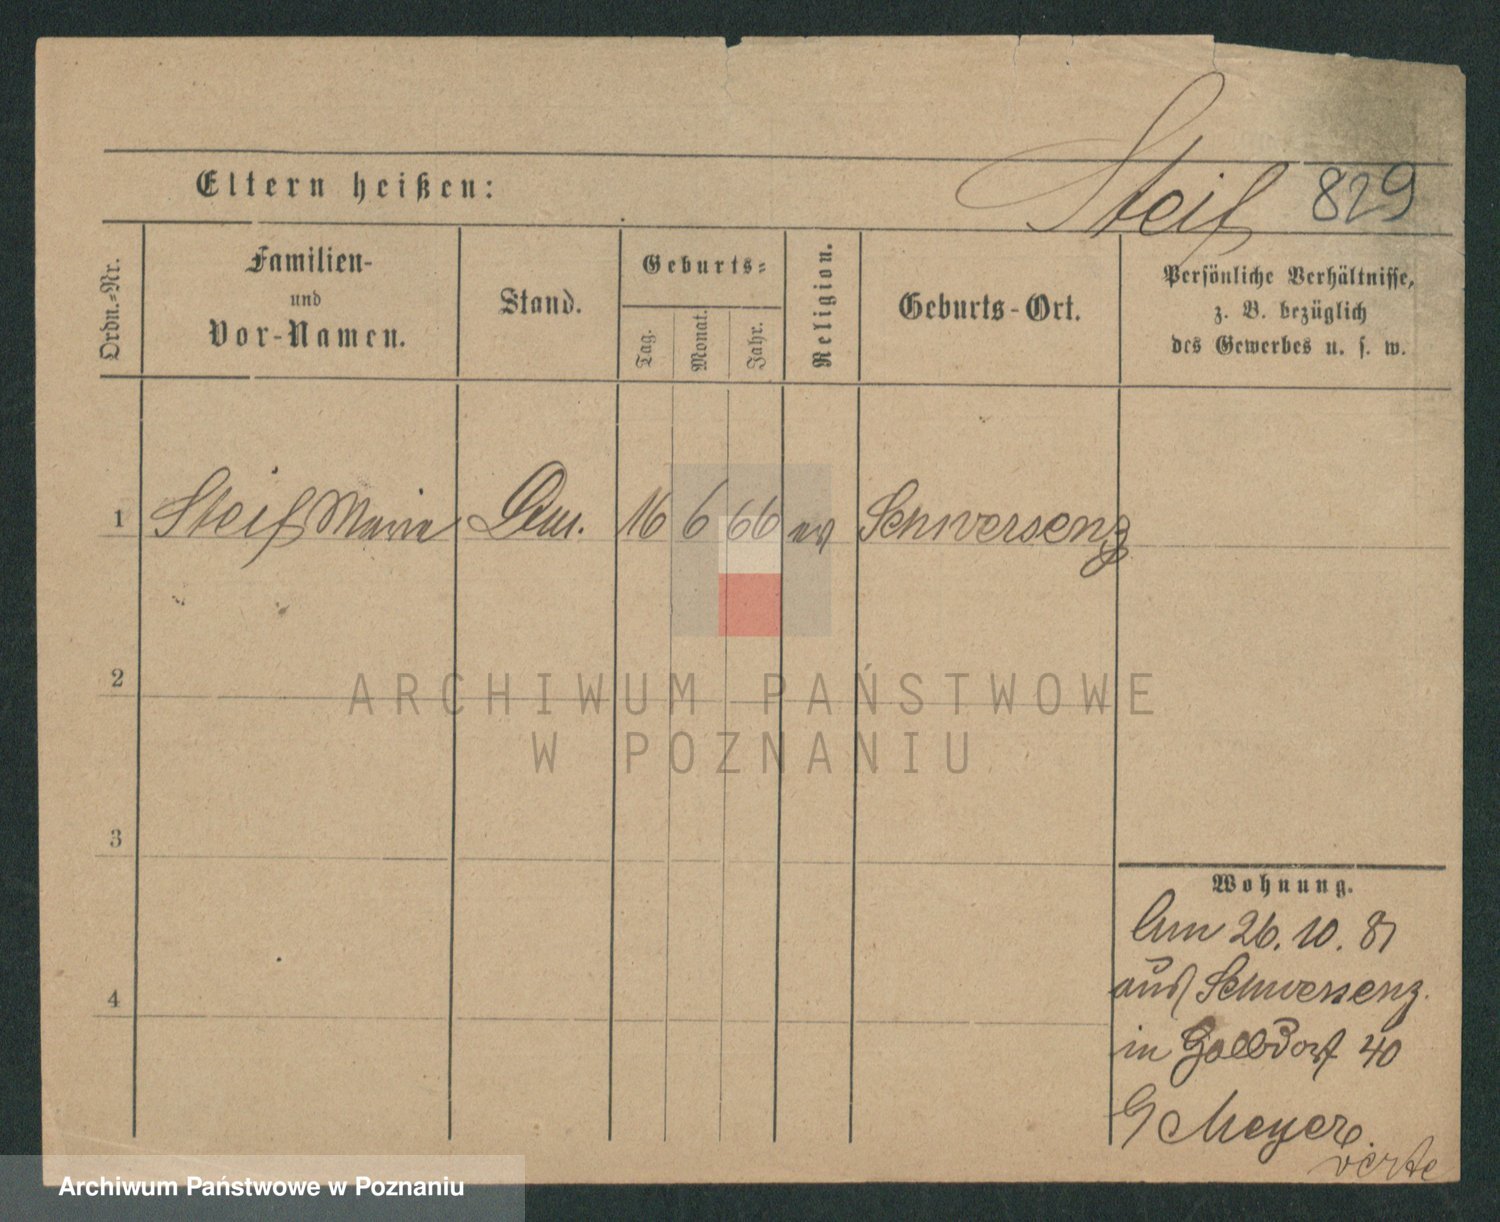 Steif 829
Eltern heißen:
Ordn.-Nr.
Familien-
und
Vor-Namen.
Stand.
Geburts-
Tag.
Monat.
Jahr.
Religion.
Geburts-Ort.
Persönliche Verhältnisse,
z. B. bezüglich
des Gewerbes u. s. w.
1 Steif Marie 16 6 66 ev Schwersenz
2
3
4
ARCHIWUM PAŃSTWOWE
W POZNANIU
Wohnung.
26. 10. 81
aus Schwersenz.
in 40
Meyer.
verte
Archiwum Państwowe w Poznaniu